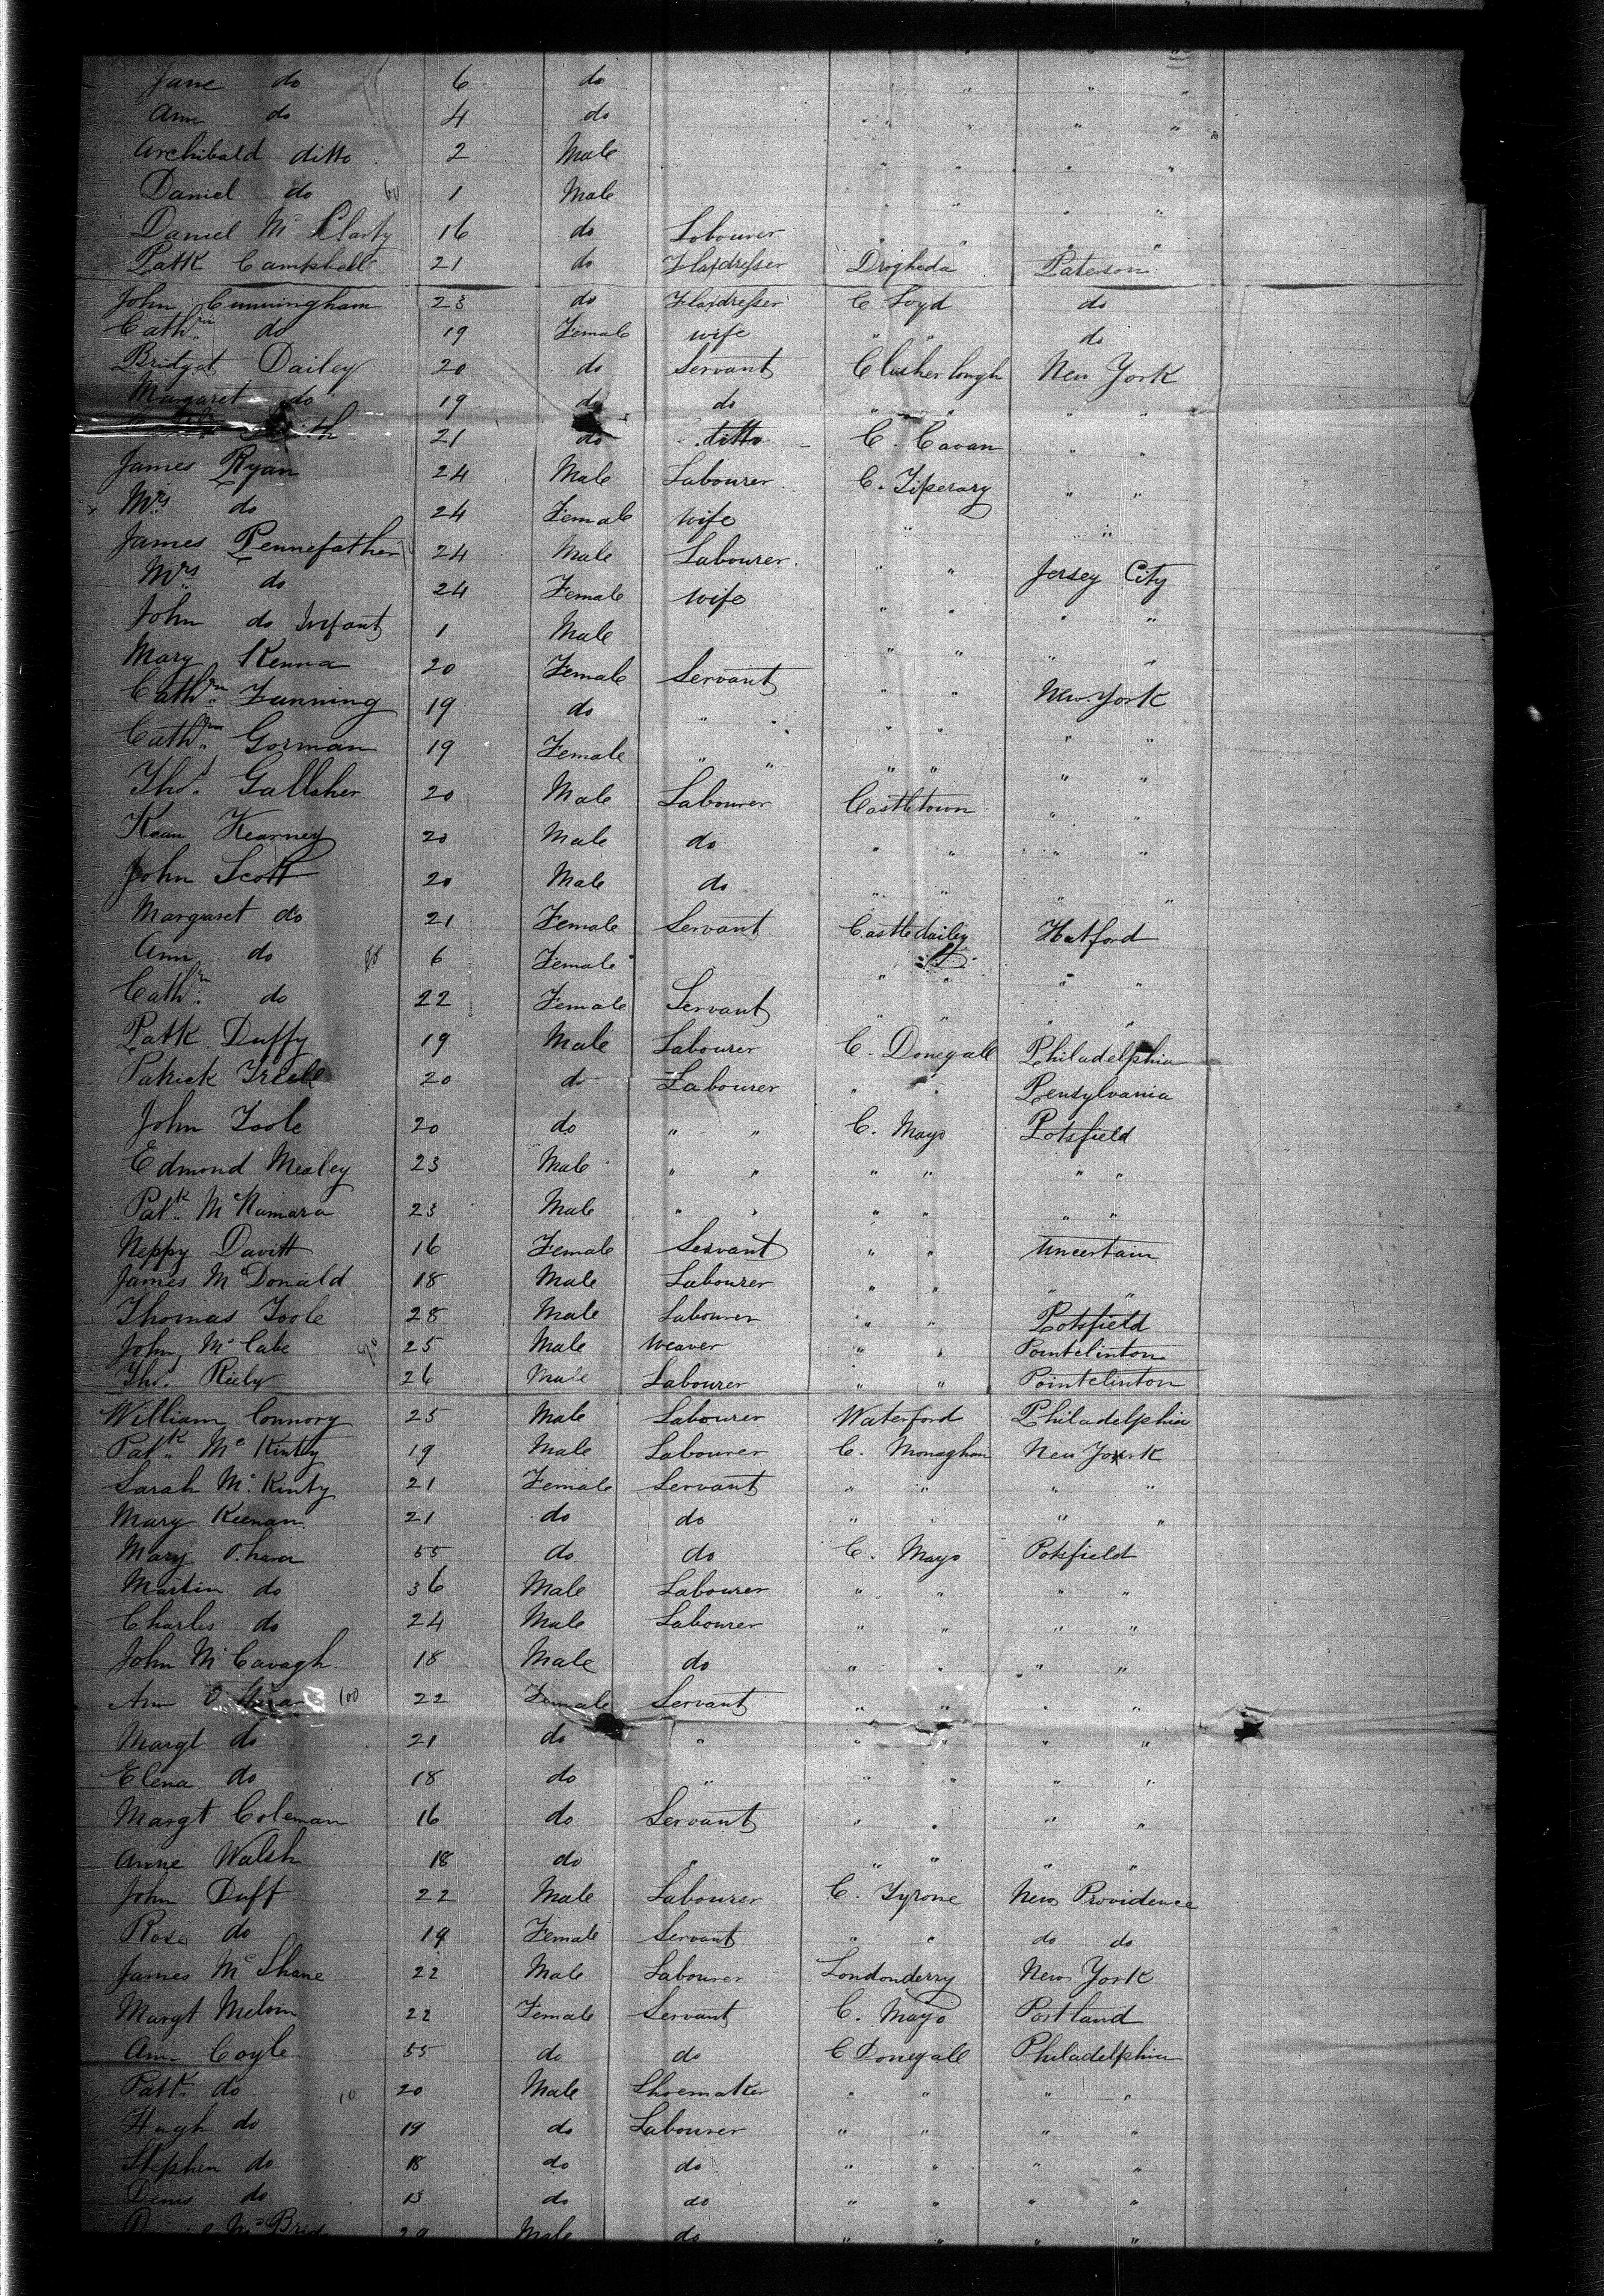 Jane do 6 do " " " "
Ann do 4 do " " " "
Archibald ditto 2 Male " " " "
Daniel do 60 1 Male " " " "
Daniel Mc Clarty 16 do Labourer " " " "
Patk Campbell 21 do Flaxdresser Drogheda Paterson
John Cunningham 23 do Flaxdresser C. Loyd do
Cathrin do 19 Female wife " " do
Bridget Dailey 20 do Servant Clusher lough New York
Margaret do 19 do do " " " "
21 do ditto C. Cavan " "
James Ryan 24 Male Labourer C. Tiperary " "
x Mrs do 24 Female wife " " "
James Pennefather 24 Male Labourer " " Jersey City
Mrs do 24 Female wife " " " "
John do Infant 1 Male " " " "
Mary Kenna 20 Female Servant " " New York
Cathrn Funning 19 do " " " " " "
Cathrn Gorman 19 Female " " " " " "
Thos. Gallaher 20 Male Labourer Castletown " "
Kean Kearney 20 Male do " " " "
John Scott 20 Male do " " " "
Margaret do 21 Female Servant Castledailey Hatford
Ann do 80 6 Female " " " "
Cathrn do 22 Female Servant " " " "
Patk. Duffy 19 Male Labourer C. Donegall Philadelphia
Patrick Friell 20 do Labourer " " Pensylvania
John Toole 20 do " " C. Mayo Potsfield
Edmond Mealey 23 Male " " " " " "
Patk. McNamara 23 Male " " " " " "
Neppy Davitt 16 Female Servant " " Uncertain
James McDonald 18 Male Labourer " " " "
Thomas Toole 28 Male Labourer " " Potsfield
John McCabe 90 25 Male Weaver " " Pointclinton
Thos. Riely 26 Male Labourer " " Pointclinton
William Connory 25 Male Labourer Waterford Philadelphia
Patk. Mc Kinty 19 Male Labourer C. Monaghan New York
Sarah Mc Kinty 21 Female Servant " " " "
Mary Keenan 21 do do " " " "
Mary O.hara 55 do do C. Mayo Potsfield
Martin do 36 Male Labourer " " " "
Charles do 24 Male Labourer " " " "
John McCavagh 18 Male do " " " "
Ann O Hara 100 22 Female Servant " " " "
Margt do 21 do " " " " "
Elena do 18 do " " " " "
Margt Coleman 16 do Servant " " " "
Anne Walsh 18 do " " " " "
John Duff 22 Male Labourer C. Tyrone New Providence
Rose do 19 Female Servant " " do do
James McShane 22 Male Labourer Londonderry New York
Margt Melvin 22 Female Servant C. Mayo Portland
Ann Coyle 55 do do C Donegall Philadelphia
Patk. do 10 20 Male Shoemaker " " " "
Hugh do 19 do Labourer " " " "
Stephen do 18 do do " " " "
Denis do 13 do do " " " "
McBrid 20 Male do " " " "